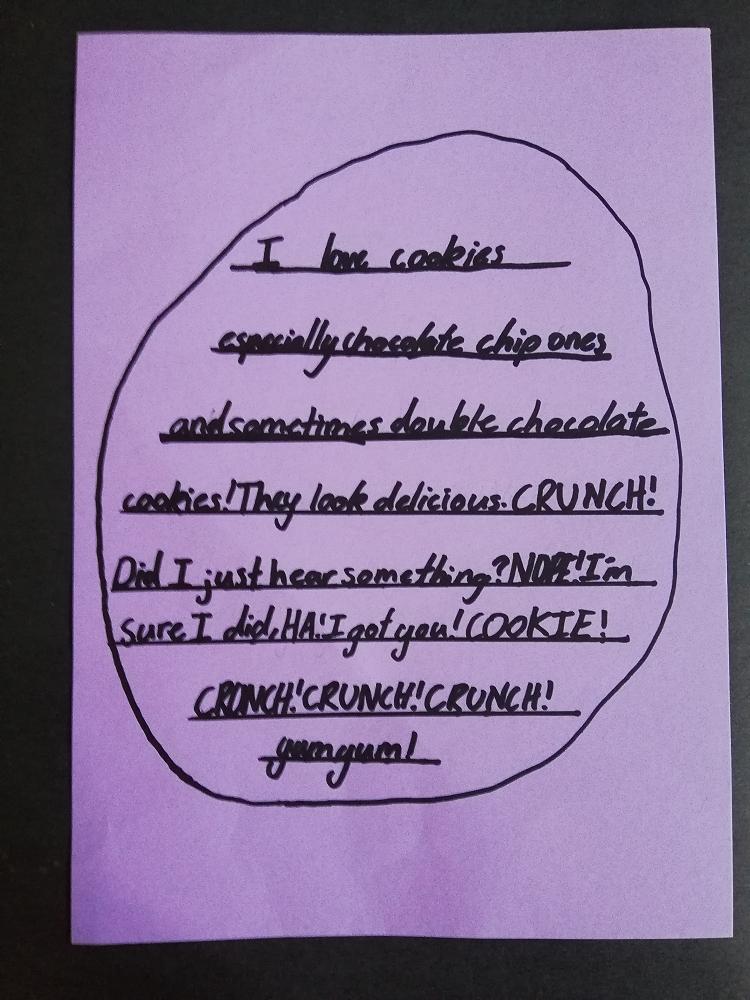 I love cookies
especially chocolate chip ones
and sometimes double chocolate
cookies! They look delicious. CRUNCH!
Did I just hear something? NOPE! I'm
sure I did, HA! I got you! COOKIE!
CRUNCH! CRUNCH! CRUNCH!
yumyum!